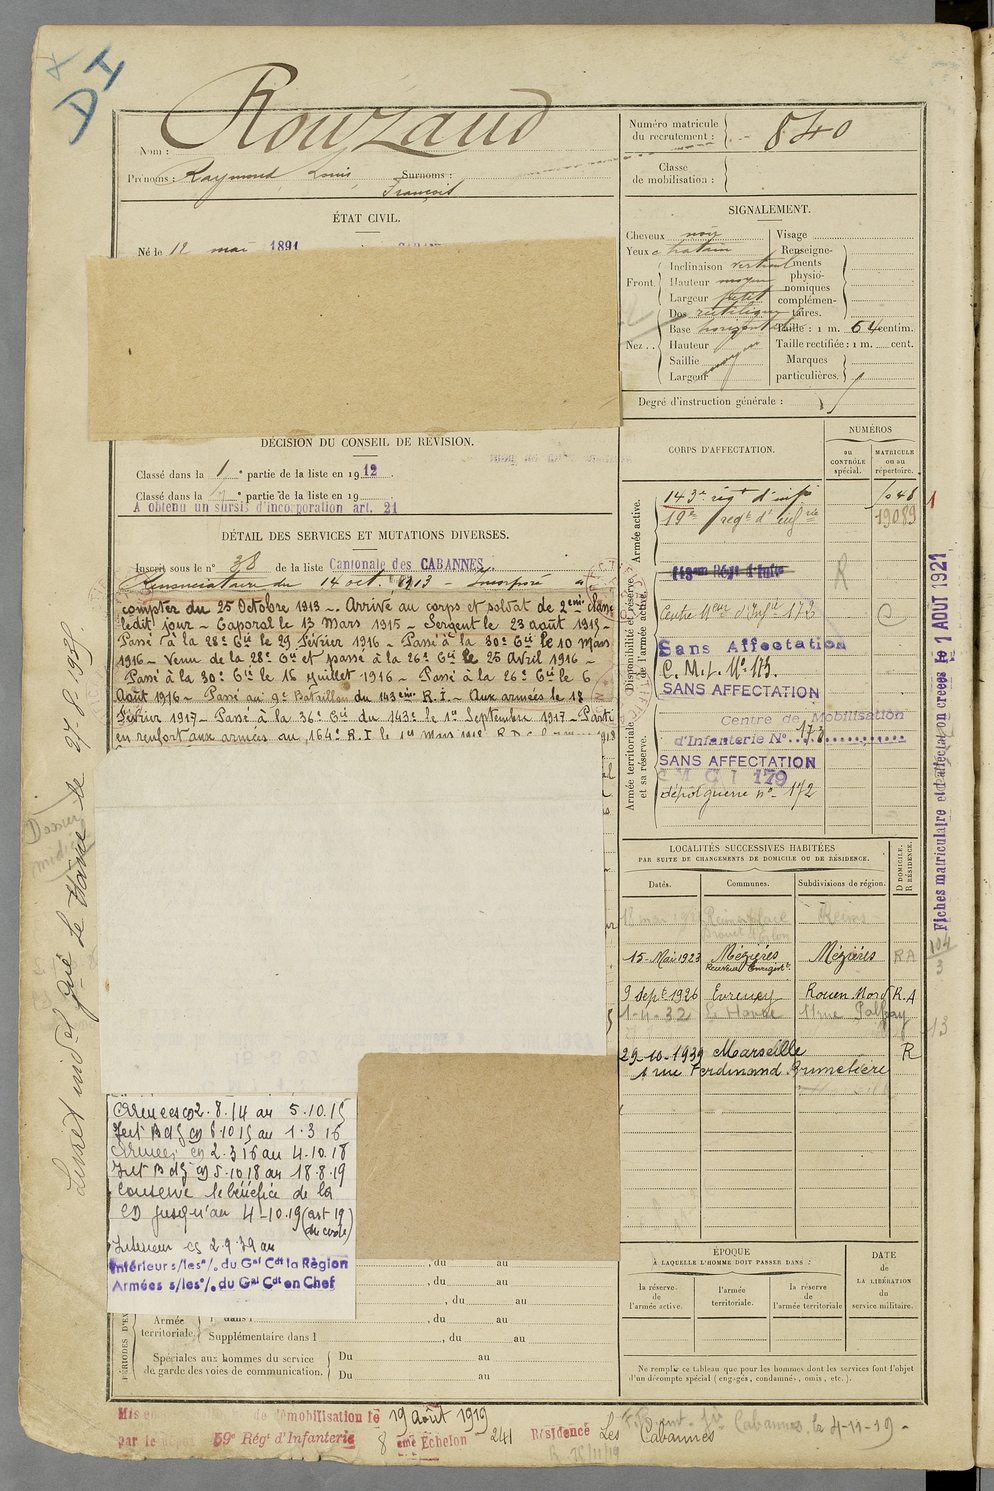 DI
Nom : Rouzaud
Prénoms : Raymond Louis Surnoms :
François
Numéro matricule
du recrutement : 840
Classe
de mobilisation :
ÉTAT CIVIL.
Né le 12 mai 1891
SIGNALEMENT.
Cheveux noir
Yeux chatain
Front. Inclinaison vertical
Hauteur moyen
Largeur petit
Nez . . Dos rectiligne
Base horizontal
Hauteur
Saillie moyen
Largeur
Visage
Renseigne-
ments
physio-
nomiques
complémen-
taires.
Taille : 1 m. 64 centim.
Taille rectifiée : 1 m. cent.
Marques
particulières.
Degré d'instruction générale :
DÉCISION DU CONSEIL DE RÉVISION.
Classé dans la 1re partie de la liste en 1912.
Classé dans la partie de la liste en 19
A obtenu un sursis d'incorporation art. 21
DÉTAIL DES SERVICES ET MUTATIONS DIVERSES.
Inscrit sous le n° 38 de la liste Cantonale des CABANNES
Renonciataire du 14 oct. 1913 - Incorporé à
compter du 25 Octobre 1913 -. Arrivé au corps et soldat de 2eme classe
ledit jour - Caporal le 13 Mars 1915 - Sergent le 23 août 1915 -
Passé à la 28e Cie le 29 Février 1916 - Passé à la 30e Cie le 10 Mars
1916 - Venu de la 28e Cie et passé à la 26e Cie le 25 Avril 1916 -
Passé à la 30e Cie le 16 Juillet 1916 - Passé à la 26e Cie le 6
Août 1916 - Passé au 9e Bataillon du 143eme R.I. - Aux armées le 18
Février 1917 - Passé à la 36e Cie du 143e le 1er Septembre 1917 - Parti
en renfort aux armées au 164e R.I le 1er Mars 1918
CORPS D'AFFECTATION.
NUMÉROS
au
CONTRÔLE
spécial.
MATRICULE
ou au
répertoire.
Armée active.
143e régt d'infie 1046
19e regt d'infrie 19089
Disponibilité et réserve
de l'armée active.
143eme Régt d'Infie
R
Centre Meur d'Infie 173
C
Sans Affectation
C. M. I. N° 173.
SANS AFFECTATION
Armée territoriale
et sa réserve.
Centre de Mobilisation
d'Infanterie N° 173
SANS AFFECTATION
C M C I 179
dépôt guerre n° 172
Fiches matriculaire et d'affectation créées le 1 AOUT 1921
LOCALITÉS SUCCESSIVES HABITÉES
PAR SUITE DE CHANGEMENTS DE DOMICILE OU DE RÉSIDENCE.
Dates. Communes. Subdivisions de région. D DOMICILE. R RÉSIDENCE.
Reims
15-Mai 1923 Mézières Mézières RA
Receveur Enregistt.
9 Sept 1926 Evreux Rouen Nord R.A
1-11-32 Le Havre 11 rue
29-10-1939 Marseille R
1 rue Ferdinand Brunetière
104
3
Livret indel payé Le Havre le 27-8-1938
Armées co 2.8.14 au 5.10.15
Int B dg cg 6.10.15 au 1.3.16
Armées cg 2.3.16 au 4.10.18
Int B dg cg 5.10.18 au 18.8.19
Conserve le bénéfice de la
CD jusqu'au 4-10.19 (art 19
du code)
Intérieur cg 2.9.39 au
Intérieur s/les °/. du Gal Cdt la Région
Armées s/les °/. du Gal Cdt en Chef
, du au
, du au
, du au
Armée
territoriale. 1re dans l , du au
Supplémentaire dans l , du au
Spéciales aux hommes du service
de garde des voies de communication. Du au
Du au
ÉPOQUE
À LAQUELLE L'HOMME DOIT PASSER DANS :
la réserve
de
l'armée active.
l'armée
territoriale.
la réserve
de
l'armée territoriale
DATE
de
LA LIBÉRATION
du
service militaire.
Ne remplir ce tableau que pour les hommes dont les services font l'objet
d'un décompte spécial (engagés, condamnés, omis, etc.).
Mis en de démobilisation le 19 août 1919
par le dépôt 59e Régt d'Infanterie 8eme Echelon 241 Résidence Les Cabannes
Cabannes, le 4-11-19 -
R 25/11/19